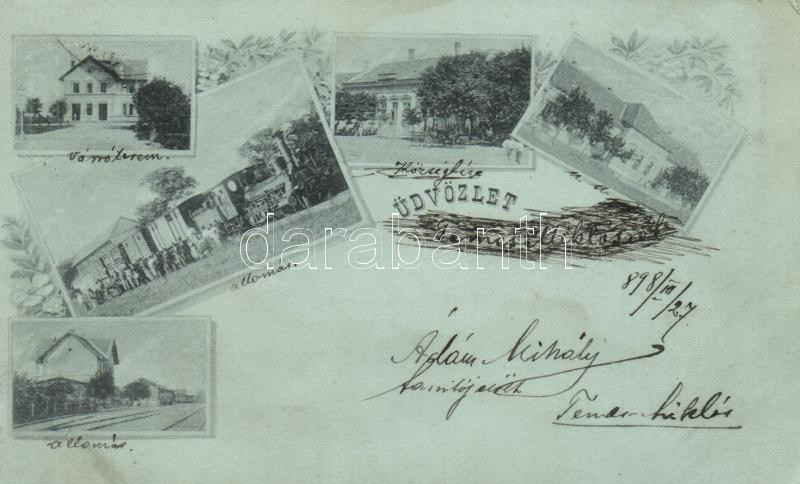 Váróterem.
Községház
u. a.
ÜDVÖZLET
darabanth
állomás.
898/III/27
Ádám Mihály
tanitójelölt
Temes-Miklós
állomás.